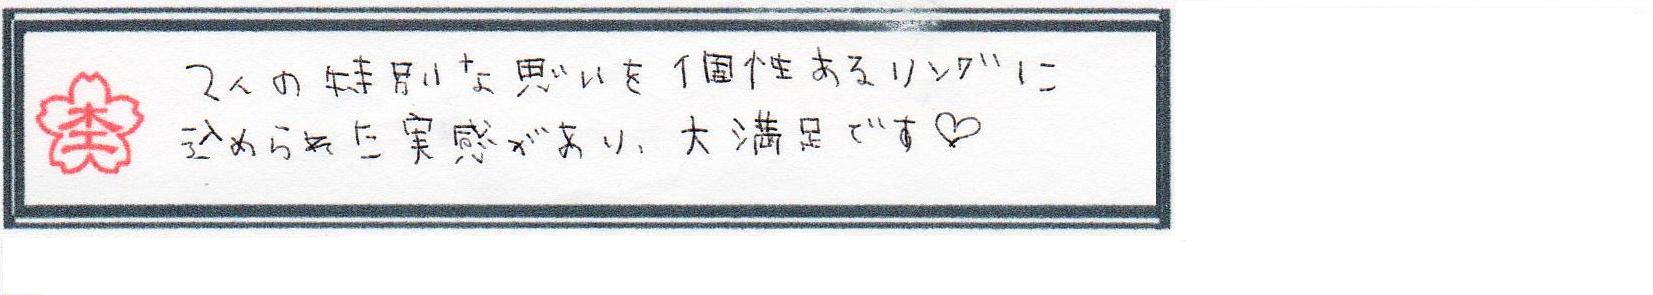 2人の特別な思いを個性あるリングに
込められた実感があり、大満足です♡